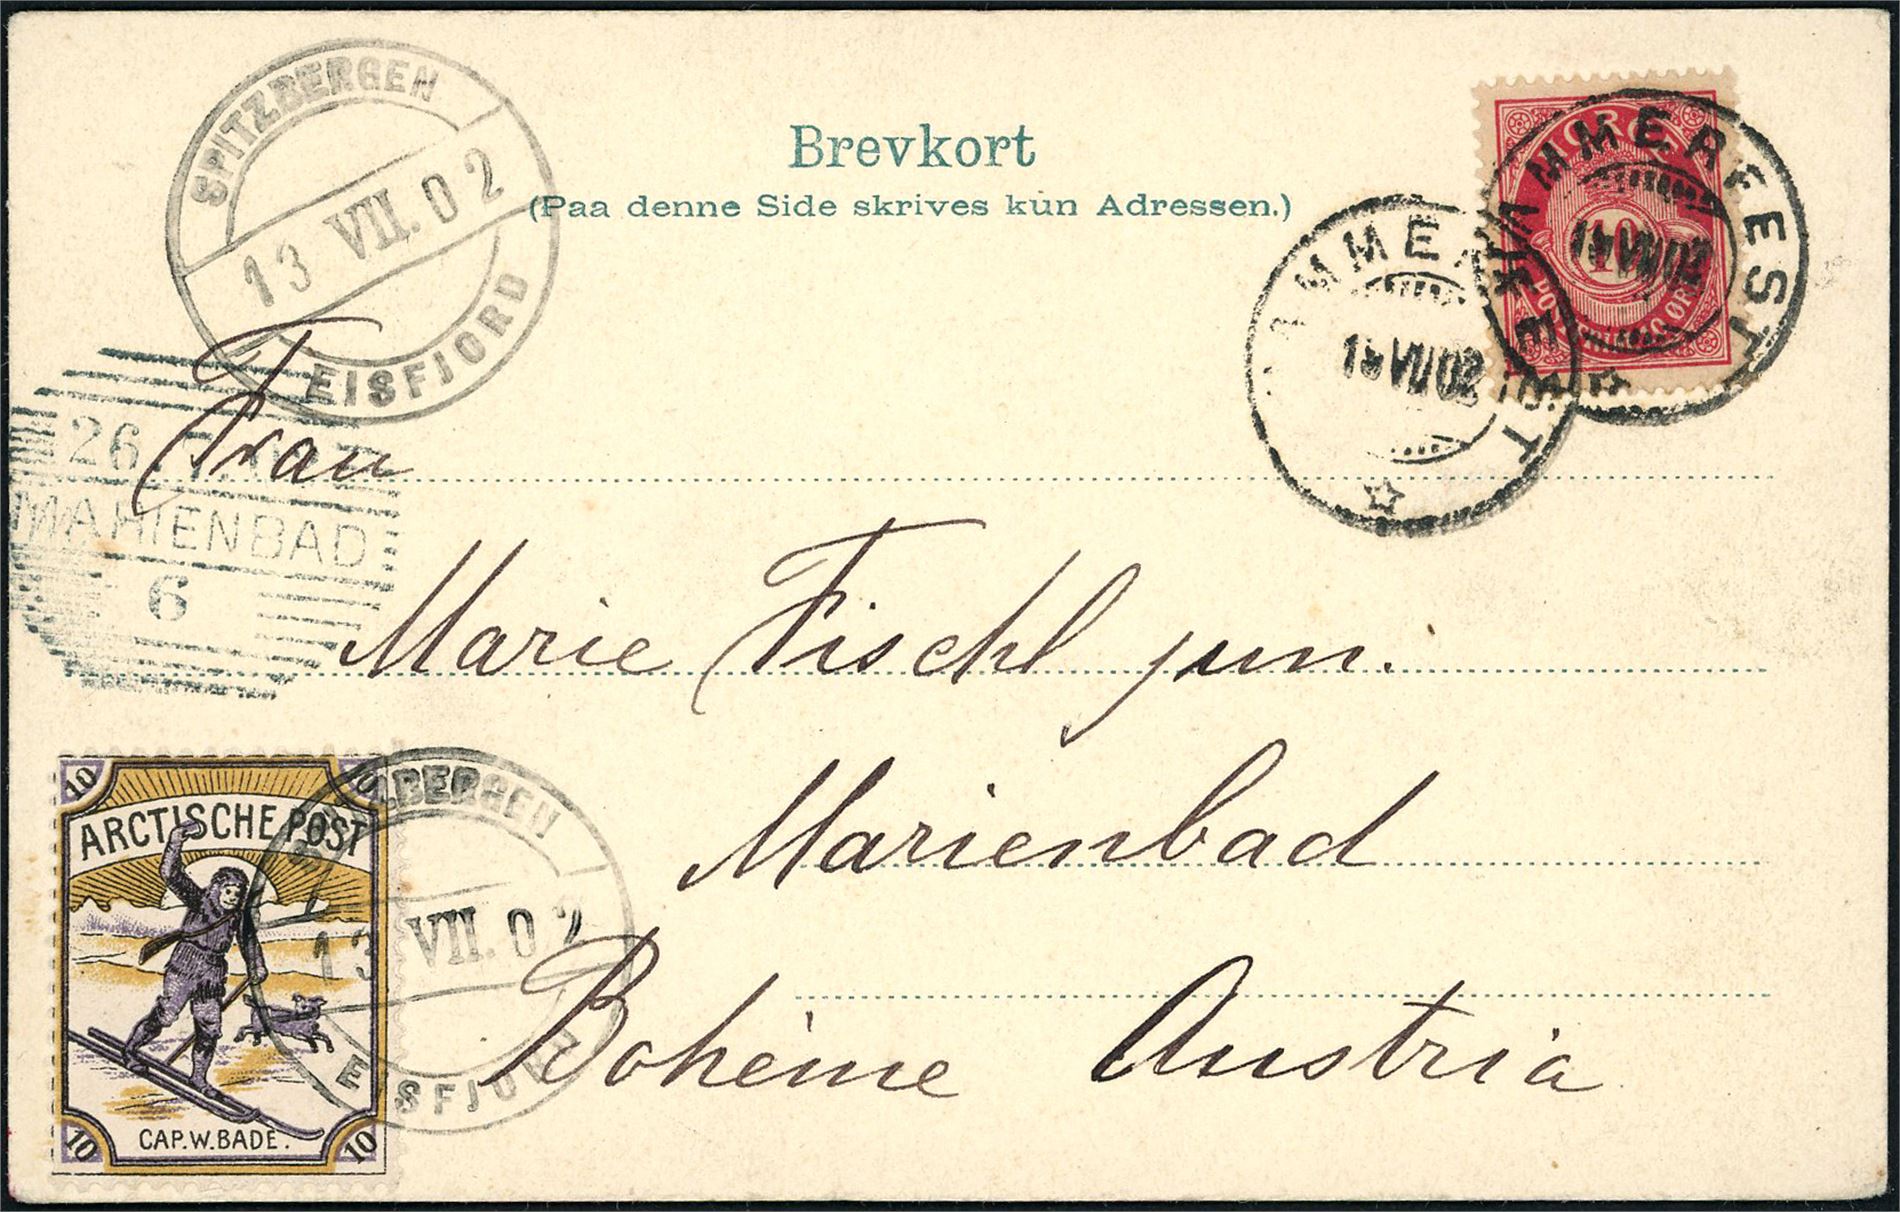 SPITZBERGEN
13 VII. 02
EISFJORD
Brevkort
(Paa denne Side skrives kun Adressen.)
NORGE
10
POSTFRIM 10 ØRE
HAMMERFEST
VII 02
HAMMERFEST
VII 02
26
MARIENBAD
6
Frau
Marie Fischl jun.
Marienbad
Bohème Austria
10 10
ARCTISCHE POST
CAP. W. BADE.
10 10
SPITZBERGEN
13 VII. 02
EISFJORD